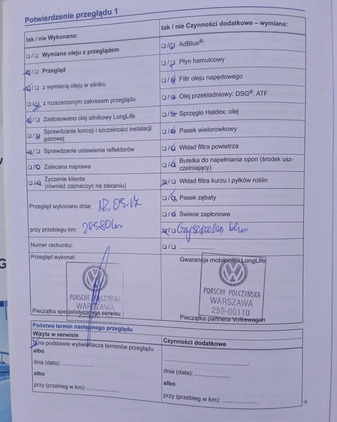 Potwierdzenie przeglądu 1
tak / nie Wykonano:
Wymiana oleju z przeglądem
Przegląd
z wymianą oleju w silniku
z rozszerzonym zakresem przeglądu
Zastosowano olej silnikowy LongLife
Sprawdzanie korozji i szczelności instalacji
gazowej
Sprawdzanie ustawienia reflektorów
Zalecana naprawa
Życzenie klienta
(również zaznaczyć na zleceniu)
Przegląd wykonano dnia: 12.05.17
przy przebiegu km:
Numer rachunku:
Przegląd wykonał:
PORSCHE POŁCZYŃSKA
WARSZAWA
Pieczątka specjalistycznego serwisu
tak / nie Czynności dodatkowe – wymiana:
AdBlue®:
Płyn hamulcowy
Filtr oleju napędowego
Olej przekładniowy: DSG®, ATF
Sprzęgło Haldex: olej
Pasek wielorowkowy
Wkład filtra powietrza
Butelka do napełniania opon (środek usz-
czelniający)
Wkład filtra kurzu i pyłków roślin
Pasek zębaty
Świece zapłonowe
Gwarancja mobilności LongLife
PORSCHE POŁCZYŃSKA
WARSZAWA
259-00110
Pieczątka partnera Volkswagen
Państwa termin następnego przeglądu
Wizyta w serwisie
na podstawie wyświetlacza terminów przeglądu
albo
dnia (data):
albo
przy (przebieg w km):
Czynności dodatkowe
dnia (data):
albo
przy (przebieg w km):